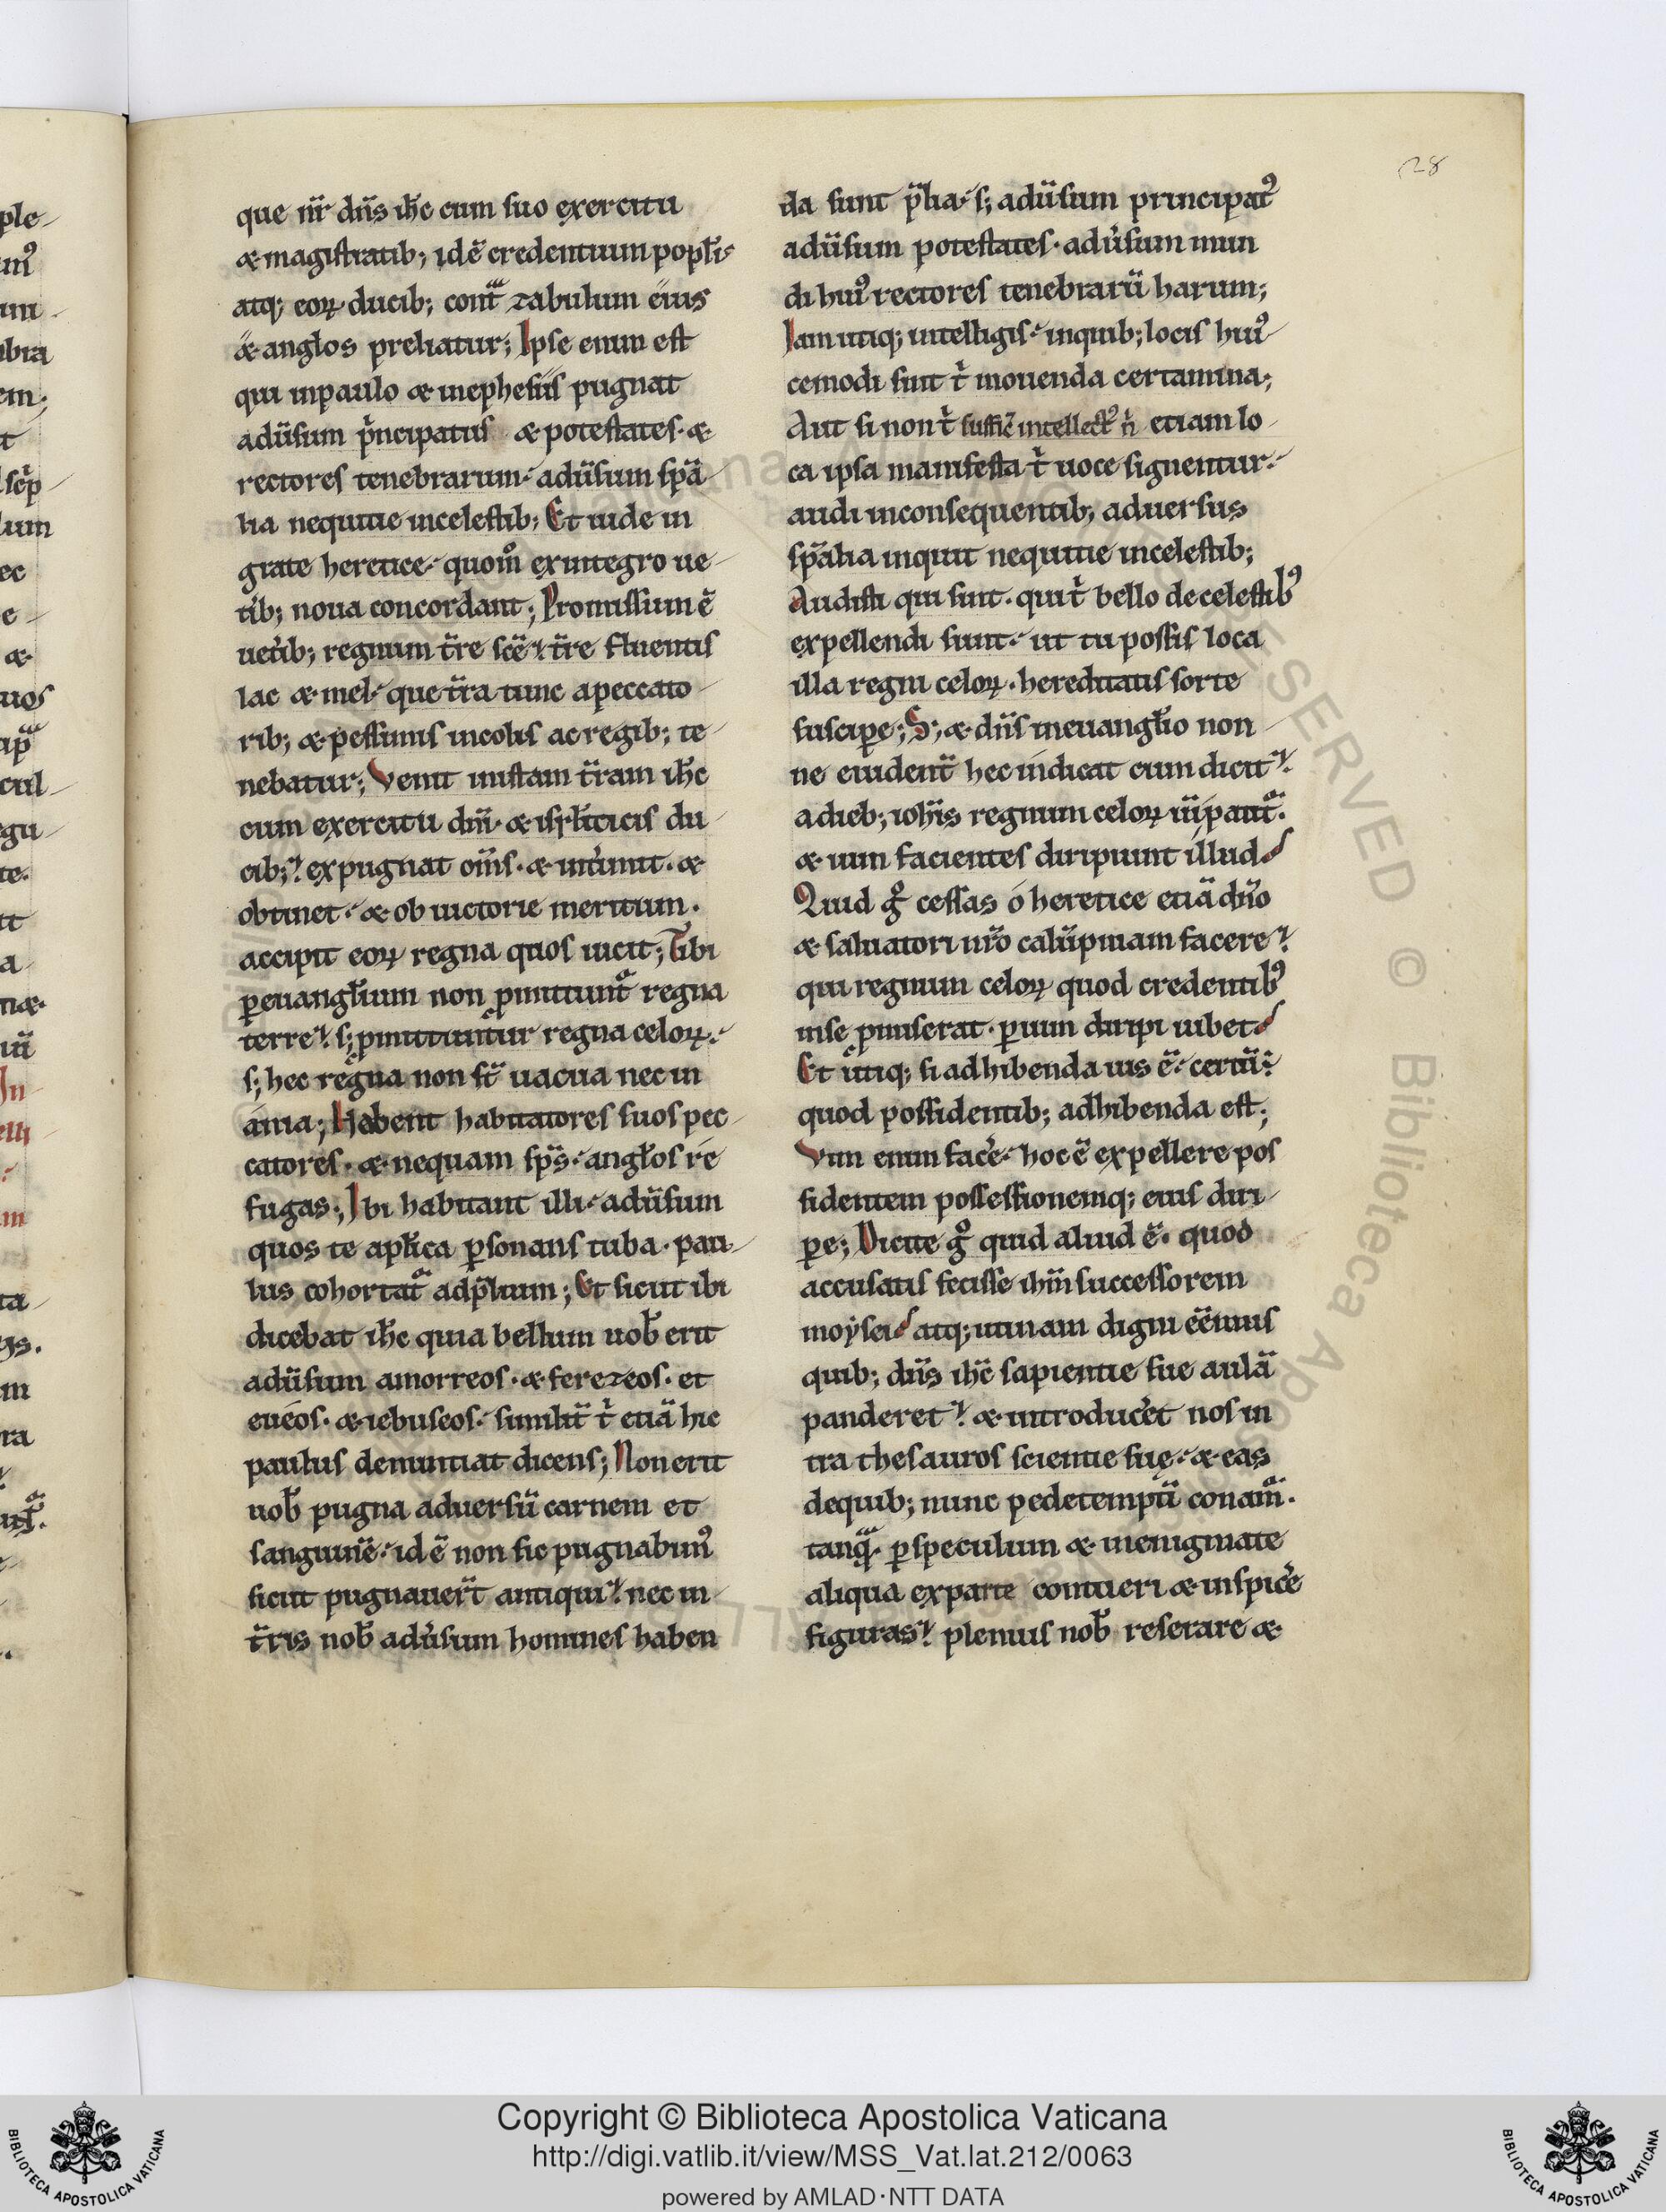 28
que nr̄ dn̄s ih̄c cum suo exercitu
& magistratib; idē credentium popl̄is
atq; eoꝝ ducib; contͣ zabulum eius
& angl̄os preliatur; Ipse enim est
qui inpaulo & inephesiis pugnat
adūsum pͥncipatus & potestates. &
rectores tenebrarum. adūsum sp̄a
lia nequitie incelestib; Et uide in
grate heretice. quom̊ exintegro ue
tib; noua concordant; Promissum ē
uetib; regnum tr̄re sc̄ę. tr̄re fluentis
lac & mel. que tr̄ra tunc apeccato
rib; & pessimis incolis ac regib; te
nebatur; Venit inistam tr̄ram ih̄c
cum exercitu dn̄i. & isrl̄iticis du
cib; expugnat om̄s. & int̓imit. &
obtinet. & ob uictorie meritum.
accipit eoꝝ regna quos uicit; Tibi
ꝑeuangl̄ium non ꝓmittunt̄ regna
terre. s; ꝓmittuntur regna celoꝝ.
s; hec regna non st̄ uacua nec in
ania; Habent habitatores suos pec
catores. & nequam sp̄s. angl̄os re
fugas; Ibi habitant illi. adūsum
quos te apl̄ica ꝑsonans tuba. pau
lus cohortat̄ adp̄lium; Et sicut ibi
dicebat ih̄c quia bellum uob̄ erit
adūsum amorreos. & ferezeos. et
eueos. & iebuseos. similit̄ t̓ etiā hic
paulus denuntiat dicens; Non erit
uob̄ pugna aduersū carnem et
sanguinē. id ē non sic pugnabimꝰ
sicut pugnauer̄t antiqui. nec in
tr̄ris nob̄ adūsum homines haben
da sunt p̄lia. s; adūsum principatꝰ
adūsum potestates. adūsum mun
di huiꝰ rectores tenebrarū harum;
Iam utiq; intelligis. inquib; locis huiꝰ
cemodi sint t̓ mouenda certamina;
Aut si non t̓ suffic̄ intellectꝰ n̓ etiam lo
ca ipsa manifesta t̓ uoce signentur.
audi inconsequentib; aduersus
sp̄alia inquit nequitie incelestib;
Audisti qui sint. qui t̓ bello de celestibꝰ
expellendi sunt. ut tu possis loca
illa regni celoꝝ. hereditatis sorte
suscipe; S; & dn̄s ineuangl̄io non
ne euident̄ hec indicat cum dicit.
adieb; ioh̄is regnum celoꝝ uīpatit̄.
& uim facientes diripiunt illud
Quid g̊ cessas o heretice etiā dn̄o
& saluatori nr̄o calūpniam facere.
qui regnum celoꝝ quod credentibꝰ
inse ꝓmiserat. ꝑuim diripi iubet
Et utiq; si adhibenda uis ē. certū.
quod possidentib; adhibenda est;
Vim enim facere. hoc ē expellere pos
sidentem possessionemq; eius diri
pe; Dicite g̊ quid aliud ē. quod
accusatis fecisse ihm̄ successorem
moysei atq; utinam digni eēmus
quib; dn̄s ih̄c sapientie sue aulā
panderet. & introduceret nos in
tra thesauros scientie suę. & eas
dequib; nunc pedetemptī conam̄.
tanq̄. ꝑspeculum & inenigmate
aliqua exparte contueri & inspicere
figuras. plenius nob̄ reserare &
Copyright © Biblioteca Apostolica Vaticana
http://digi.vatlib.it/view/MSS_Vat.lat.212/0063
powered by AMLAD·NTT DATA